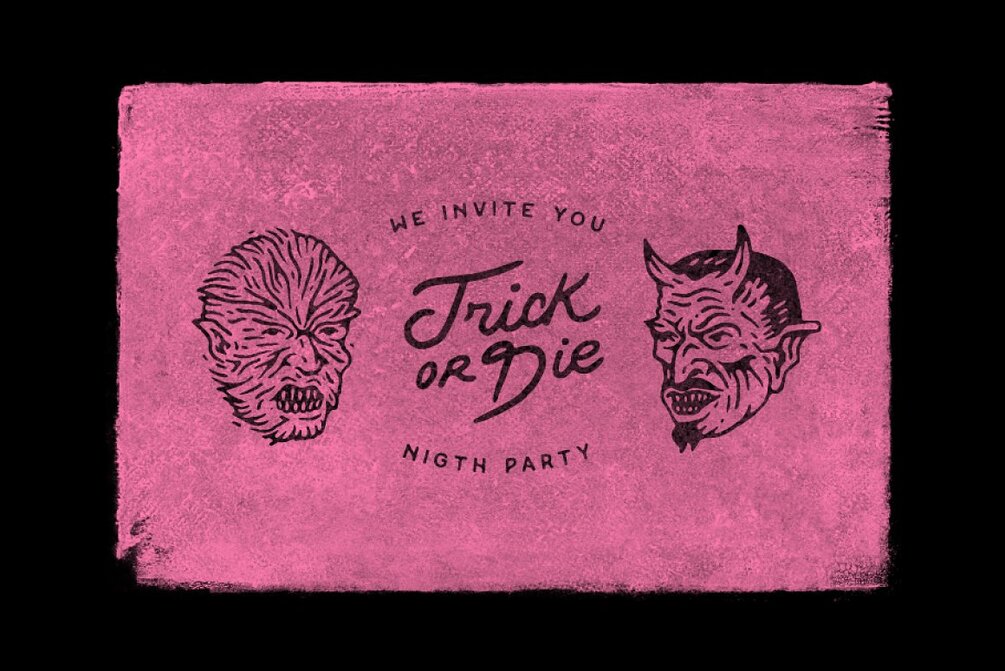 WE INVITE YOU
Trick
OR Die
NIGTH PARTY